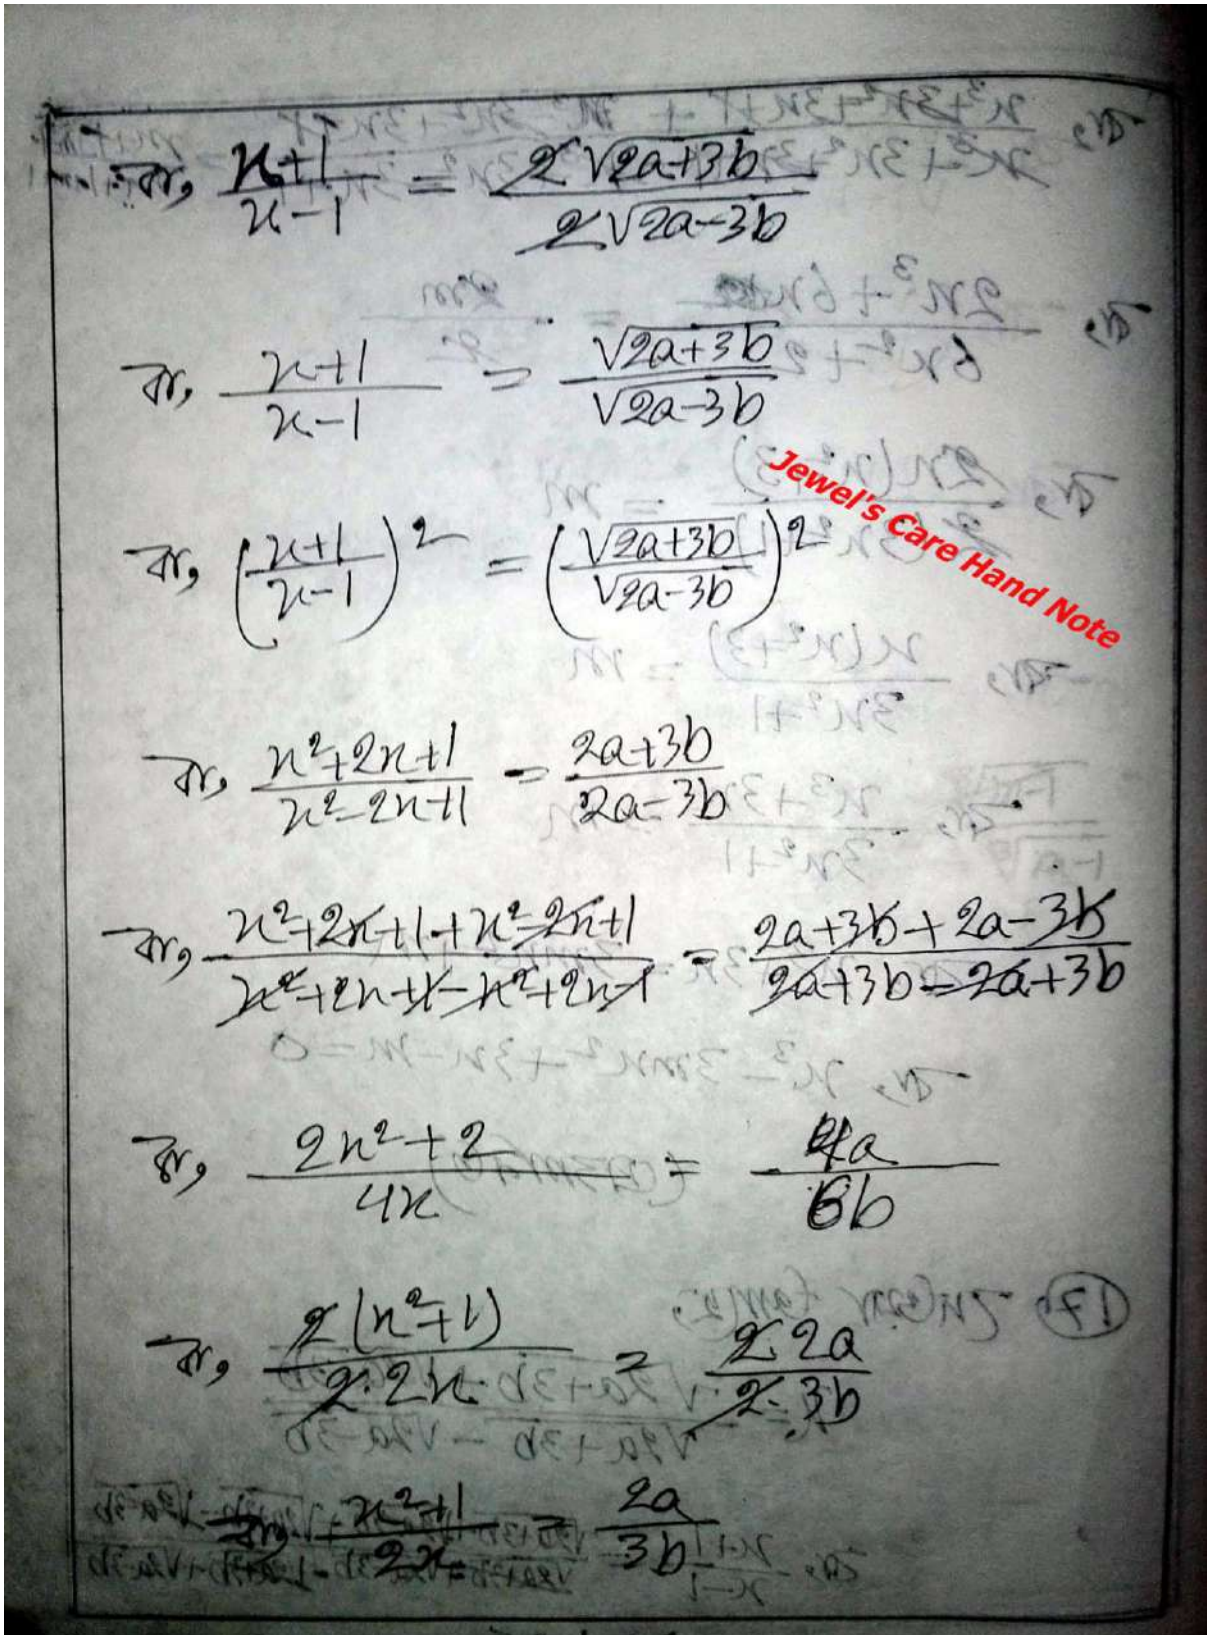 বা, x+1/x-1 = 2√2a+3b/2√2a-3b
বা, x+1/x-1 = √2a+3b/√2a-3b
Jewel's Care Hand Note
বা, (x+1/x-1)² = (√2a+3b/√2a-3b)²
বা, x²+2x+1/x²-2x+1 = 2a+3b/2a-3b
বা, x²+2x+1+x²-2x+1/x²+2x+1-x²+2x-1 = 2a+3b+2a-3b/2a+3b-2a+3b
বা, 2x²+2/4x = 4a/6b
বা, 2(x²+1)/2.2x = 2.2a/2.3b
বা, x²+1/2x = 2a/3b